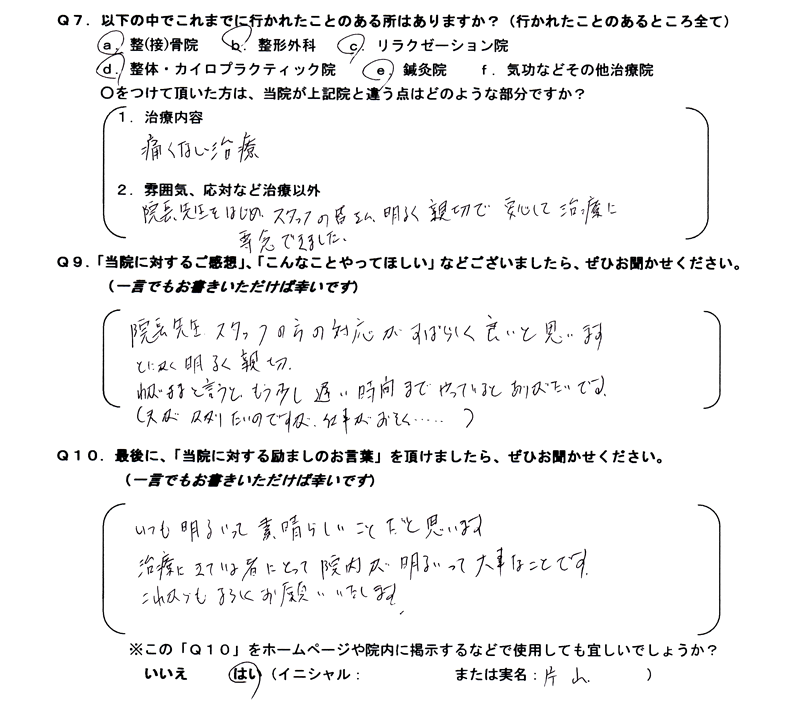 Q7．以下の中でこれまでに行かれたことのある所はありますか？（行かれたことのあるところ全て）
a．整(接)骨院　b．整形外科　c．リラクゼーション院
d．整体・カイロプラクティック院　e．鍼灸院　f．気功などその他治療院
〇をつけて頂いた方は、当院が上記院と違う点はどのような部分ですか？
1．治療内容
痛くない治療
2．雰囲気、応対など治療以外
院長先生をはじめ、スタッフの皆さん、明るく親切で安心して治療に
専念できました。
Q9．「当院に対するご感想」、「こんなことやってほしい」などございましたら、ぜひお聞かせください。
（一言でもお書きいただけば幸いです）
院長先生、スタッフの方の対応がすばらしく良いと思います
とにかく明るく親切。
わがままと言うと、もう少し遅い時間までやっているとありがたいです。
（夫が　たいのですが、仕事がおそく……）
Q10．最後に、「当院に対する励ましのお言葉」を頂けましたら、ぜひお聞かせください。
（一言でもお書きいただけば幸いです）
いつも明るいって素晴らしいことだと思います
治療にきている者にとって院内が明るいって大事なことです。
これからもよろしくお願いいたします。
※この「Q10」をホームページや院内に掲示するなどで使用しても宜しいでしょうか？
いいえ　はい（イニシャル：　または実名：片山　）